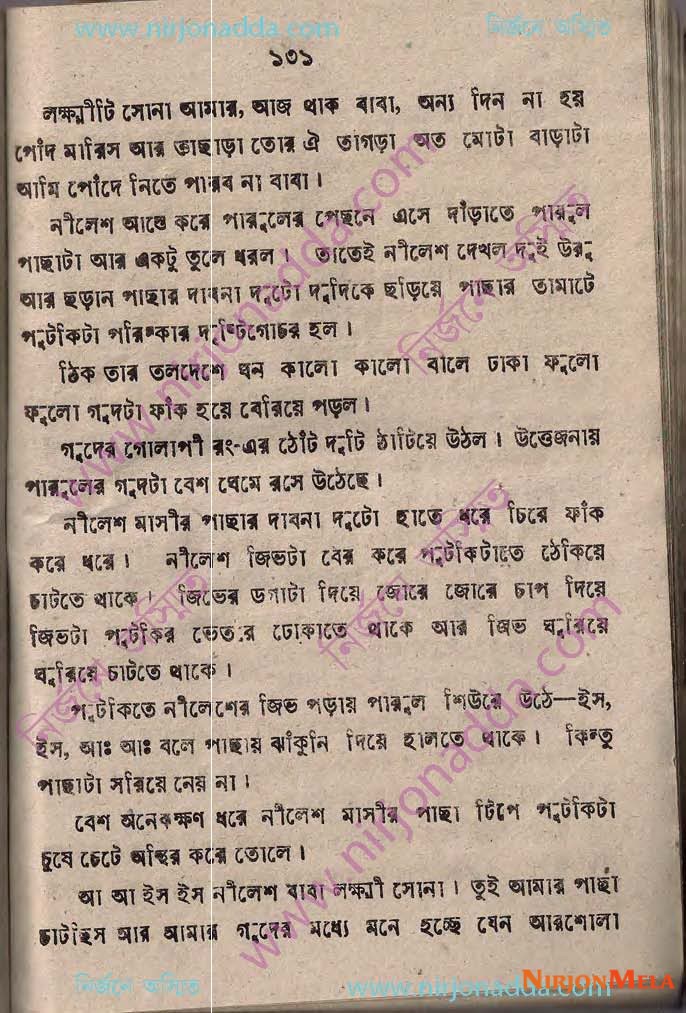 www.nirjonadda.com নির্জনে অস্মিত
১৩১
লক্ষ্মীটি সোনা আমার, আজ থাক বাবা, অন্য দিন না হয়
পোঁদ মারিস আর তাছাড়া তোর ঐ তাগড়া অত মোটা বাড়াটা
আমি পোঁদে নিতে পারব না বাবা।
নীলেশ আস্তে করে পারুলের পেছনে এসে দাঁড়াতে পারুল
পাছাটা আর একটু তুলে ধরল। তাতেই নীলেশ দেখল দুই উরু
আর ছড়ান পাছার দাবনা দুটো দুদিকে ছড়িয়ে পাছার তামাটে
পুটকিটা পরিষ্কার দৃষ্টিগোচর হল।
ঠিক তার তলদেশে ঘন কালো কালো বালে ঢাকা ফুলো
ফুলো গুদটা ফাঁক হয়ে বেরিয়ে পড়ল।
গুদের গোলাপী রং-এর ঠোঁট দুটি ঠাটিয়ে উঠল। উত্তেজনায়
পারুলের গুদটা বেশ ঘেমে রসে উঠেছে।
নীলেশ মাসীর পাছার দাবনা দুটো হাতে ধরে চিরে ফাঁক
করে ধরে। নীলেশ জিভটা বের করে পুটকিটাতে ঠেকিয়ে
চাটতে থাকে। জিভের ডগাটা দিয়ে জোরে জোরে চাপ দিয়ে
জিভটা পুটকির ভেতরে ঢোকাতে থাকে আর জিভ ঘুরিয়ে
ঘুরিয়ে চাটতে থাকে।
পুটকিতে নীলেশের জিভ পড়ায় পারুল শিউরে উঠে—ইস,
ইস, আঃ আঃ বলে পাছায় ঝাঁকুনি দিয়ে হালতে থাকে। কিন্তু
পাছাটা সরিয়ে নেয় না।
বেশ অনেকক্ষণ ধরে নীলেশ মাসীর পাছা টিপে পুটকিটা
চুষে চেটে অস্থির করে তোলে।
আ আ ইস ইস নীলেশ বাবা লক্ষ্মী সোনা। তুই আমার পাছা
চাটছিস আর আমার গুদের মধ্যে মনে হচ্ছে যেন আরশোলা
নির্জনে অস্মিত www.nirjonadda.com
NIRJONMELA